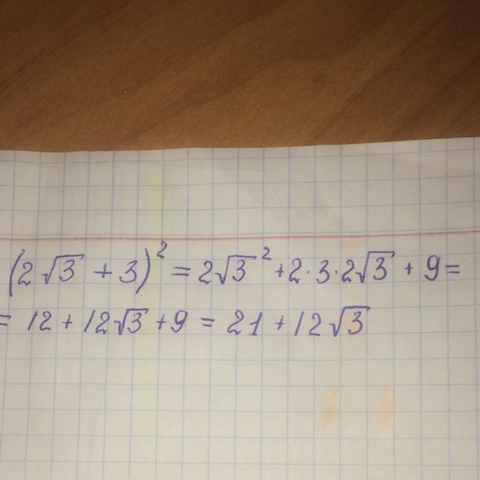 (2√3 + 3)² = 2√3² + 2·3·2√3 + 9 =
= 12 + 12√3 + 9 = 21 + 12√3